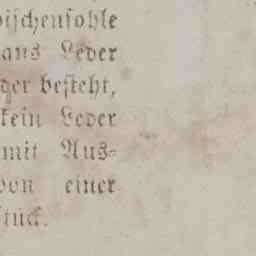 ischensohle
aus Leder
ger besteht,
kein Leder
mit Aus-
von einer
stück.